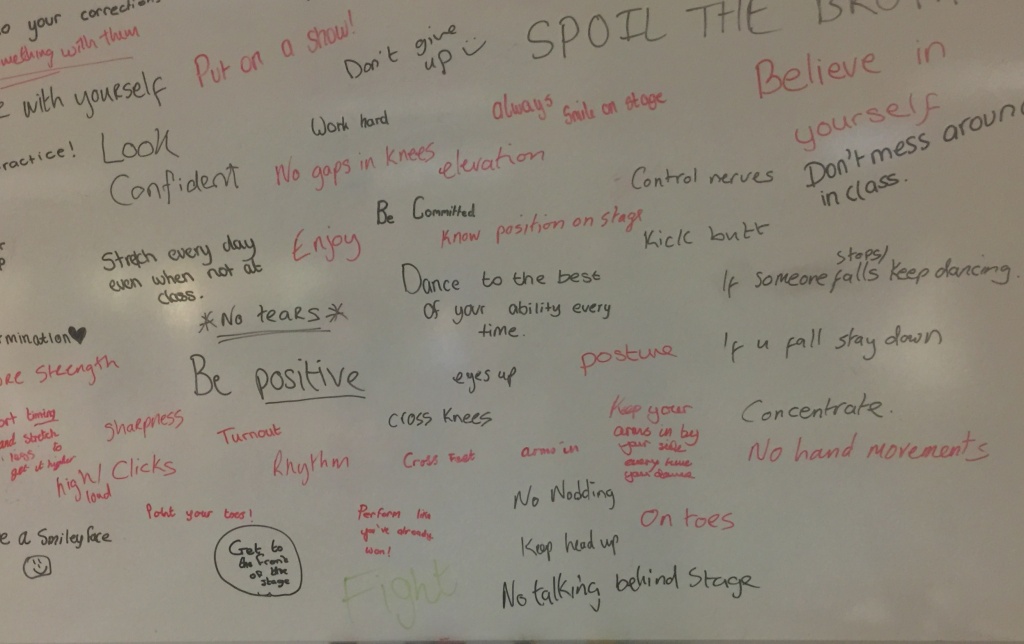 o your correction
mething with them
Put on a show!
Don't give
up
SPOIL THE
with yourself
Believe in
yourself
Work hard
always Smile on stage
ractice!
Look
Confident
No gaps in knees
elevation
Control nerves
Don't mess around
in class.
Be Committed
Know position on stage
Kick butt
Stretch every day
even when not at
class.
Enjoy
Dance to the best
of your ability every
time.
stops/
If someone falls keep dancing.
*No tears*
mination♥
If u fall stay down
re Strength
Be positive
eyes up
posture
ort timing
and stretch
legs to
get it higher
sharpness
Turnout
cross knees
Keep your
arms in by
your side
every time
you dance
Concentrate.
high/Clicks
loud
Rhythm
Cross Feet
arms in
No hand movements
No Nodding
Point your toes!
Perform like
you've already
won!
On toes
e a Smiley face
Get to
the front
of the
stage
Keep head up
Fight
No talking behind Stage